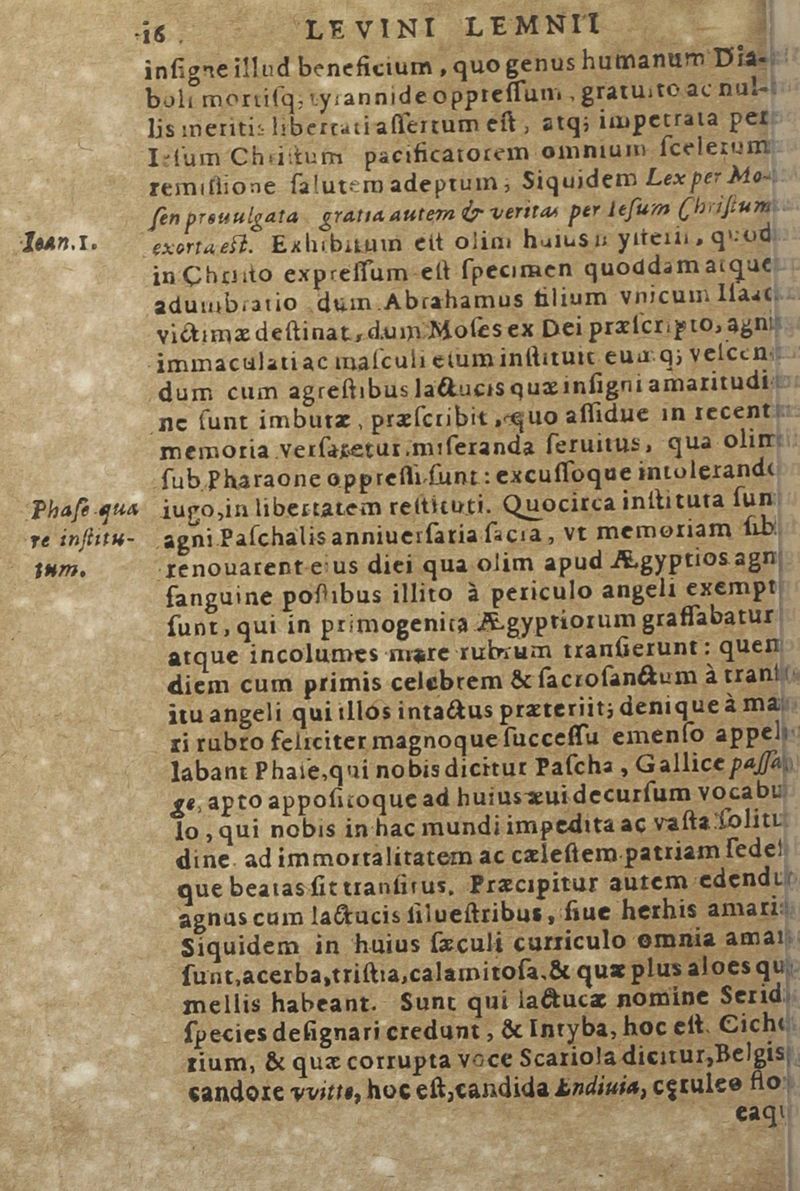 16. LEVINI LEMNII
insigne illud beneficium, quo genus humanum Dia-
boli mortisq; tyrannide oppressum, gratuito ac nul-
lis meritis libertati assertum est, atq; impetrata per
Iesum Christum pacificatorem omnium scelerum
remissione salutem adeptum; Siquidem Lex per Mo-
Ioan.1.
sen promulgata gratia autem & veritas per Iesum Christum
exorta est. Exhibitum est olim huiusu yſteiii, quod
in Christo expressum est specimen quoddam atque
adumbratio dum Abrahamus filium vnicum Isaac
victimæ destinat, dum Moses ex Dei præscripto, agni
immaculati ac masculi esum instituit eumq; vescen-
dum cum agrestibus lactucis quæ insigni amaritudi-
ne sunt imbutæ, præscribit, quo assidue in recenti
memoria versaretur miseranda seruitus, qua olim
sub Pharaone oppressi sunt: excussoque intolerand
Phase qua
re institu-
tum.
iugo, in libertatem restituti. Quocirca instituta sun
agni Paschalis anniuersaria sacra, vt memoriam sib
renouarent eius diei qua olim apud Ægyptios agn
sanguine postibus illito à periculo angeli exempt
sunt, qui in primogenita Ægyptiorum grassabatur
atque incolumes mare rubrum transierunt: quem
diem cum primis celebrem & sacrosanctum à trans
itu angeli qui illos intactus præteriit; denique à ma
ri rubro feliciter magnoque successu emenso appel
labant Phase, qui nobis dicitur Pascha, Gallice passa
ge, apto appositoque ad huius æui decursum vocabu
lo, qui nobis in hac mundi impedita ac vasta solitu
dine ad immortalitatem ac cælestem patriam sedes
que beatas fit transitus. Præcipitur autem edendu
agnus cum lactucis siluestribus, siue herbis amari
Siquidem in huius sæculi curriculo omnia amar
sunt, acerba, tristia, calamitosa. & quæ plus aloes qu
mellis habeant. Sunt qui lactucæ nomine Serid
species designari credunt, & Intyba, hoc est. Cicho
rium, & quæ corrupta voce Scariola dicitur, Belgis
candore vvitte, hoc est, candida Endiuia, cęruleo flo
eaqu